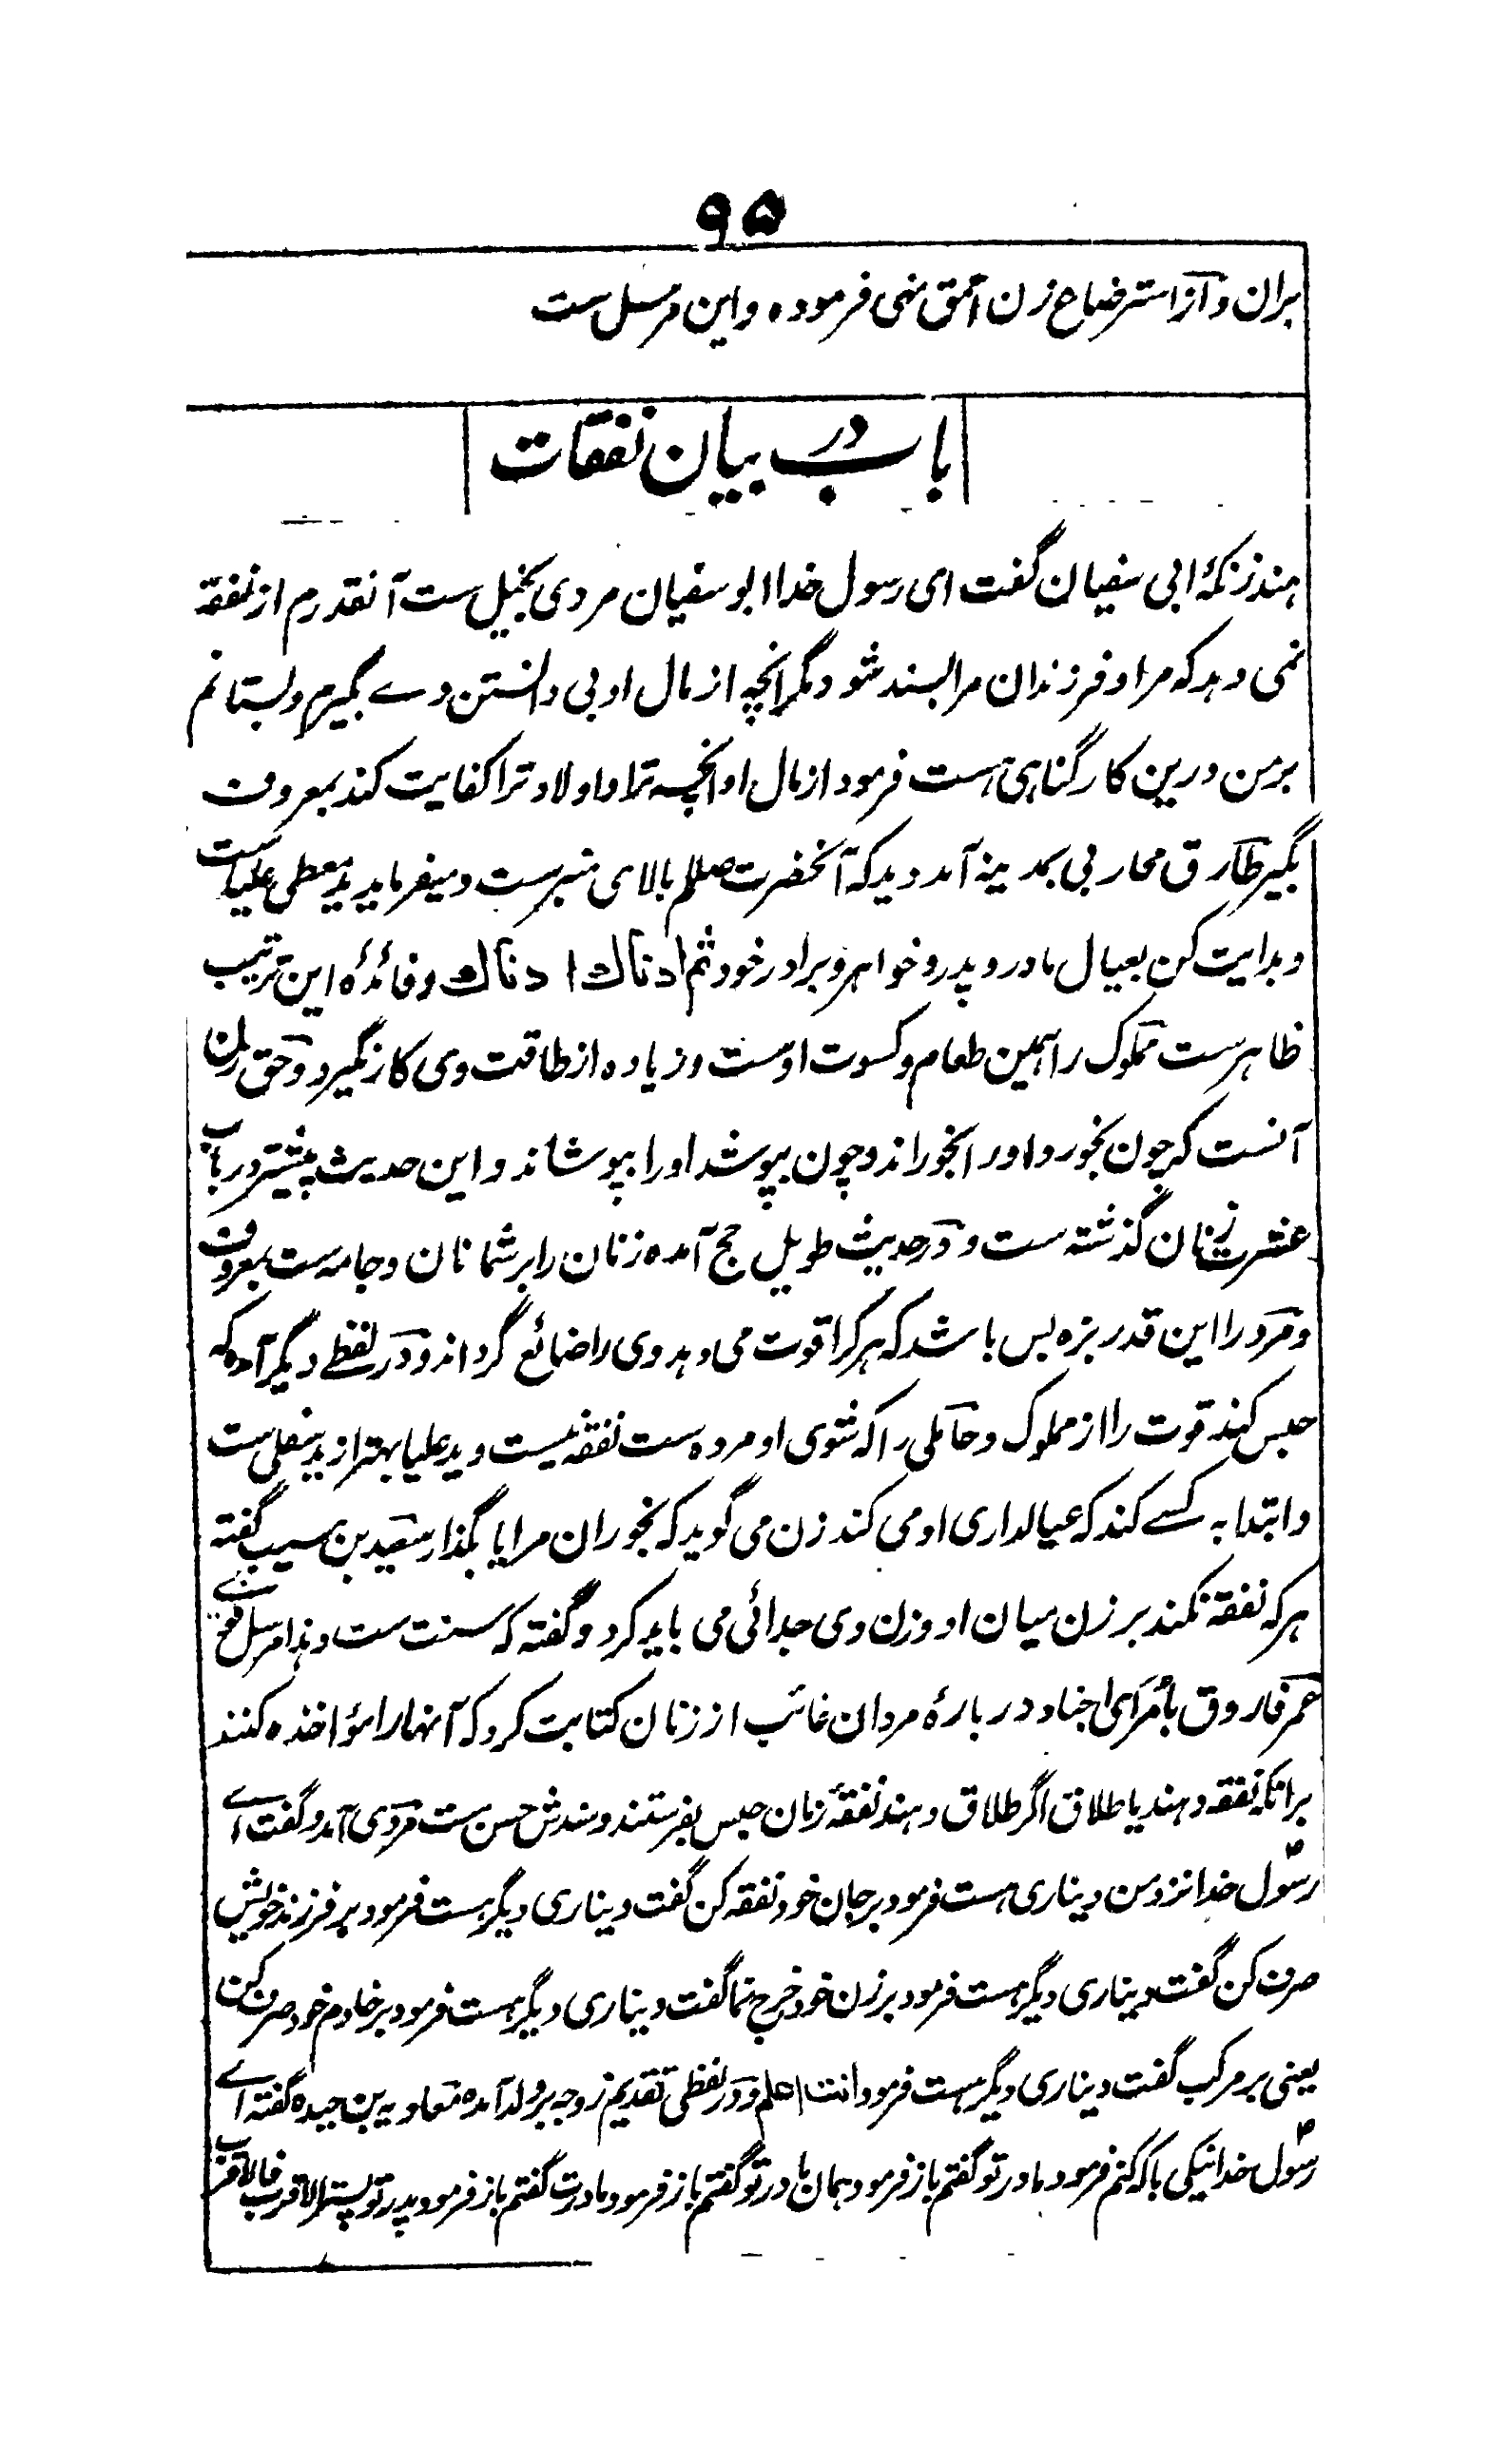 ۹۵
بران و از استرضاع زن احمق نہی فرموده و این مرسل ست
باب در بیان نفقات
ہند زنکۂ ابی سفیان گفت ای رسول خدا ابو سفیان مردی بخیل ست آنقدرم از نفقہ
نمی دہد کہ مرا و فرزندان مرا بسند شود مگر انچہ از مال او بی دانستن وے بگیرم و بستانم
بر من درین کار گناہی ہست فرمود از مال او انچہ ترا و اولاد ترا کفایت کند بمعروف
بگیر طارق محاربی بمدینہ آمد دید کہ آنحضرت صللم بالای منبرست و میفرماید ید معطی علیاست
و بدایت کن بعیال مادر و پدر و خواہر و برادر خود ثم ادناك ادناك و فائدۂ این ترتیب
ظاہرست مملوک را ہمین طعام و کسوت اوست و زیادہ از طاقت وی کار نگیرد و حق زن
آنست کہ چون بخورد او را بخوراند و چون بپوشد او را بپوشاند و این حدیث پیشتر در باب
عشرت زنان گذشتہ ست و در حدیث طویل حج آمده زنان را بر شما نان و جامہ ست بمعروف
و مرد را این قدر بزه بس باشد کہ ہر کرا قوت می دہد وی را ضائع گرداند و در لفظے دیگر آمده کہ
حبس کند قوت را از مملوک و حاملی را کہ شوی او مرده ست نفقہ نیست و ید علیا بہتر از ید سفلی ست
و ابتدا بہ کسے کند کہ عیالداری او می کند زن می گوید کہ بخوران مرا یا بگذار سعید بن مسیب گفتہ
ہر کہ نفقہ نکند بر زن میان او و زن وی جدائی می باید کرد و گفتہ کہ سنت ست و ہذا مرسل قوی
عمر فاروق بأمرای اجناد در بارۂ مردان غائب از زنان کتابت کرد کہ آنہا را مؤاخذه کنند
برانکہ نفقہ دہند یا طلاق اگر طلاق دہند نفقۂ زمان حبس بفرستند و سندش حسن ست مردی آمد و گفت اے
رسول خدا نزد من دیناری ہست فرمود بر جان خود نفقہ کن گفت دیناری دیگر ہست فرمود بر فرزند خویش
صرف کن گفت دیناری دیگر ہست فرمود بر زن خود خرج نما گفت دیناری دیگر ہست فرمود بر خادم خود صرف کن
یعنی بر مرکب گفت دیناری دیگر ہست فرمود انت اعلم و در لفظی تقدیم زوجہ بر ولد آمده معاویہ بن حیده گفتہ اے
رسول خدا نیکی با کہ کنم فرمود مادر تو گفتم باز فرمود ہمان مادر تو گفتم باز فرمود مادرت گفتم باز فرمود پدر تو پستر الاقرب فالاقرب